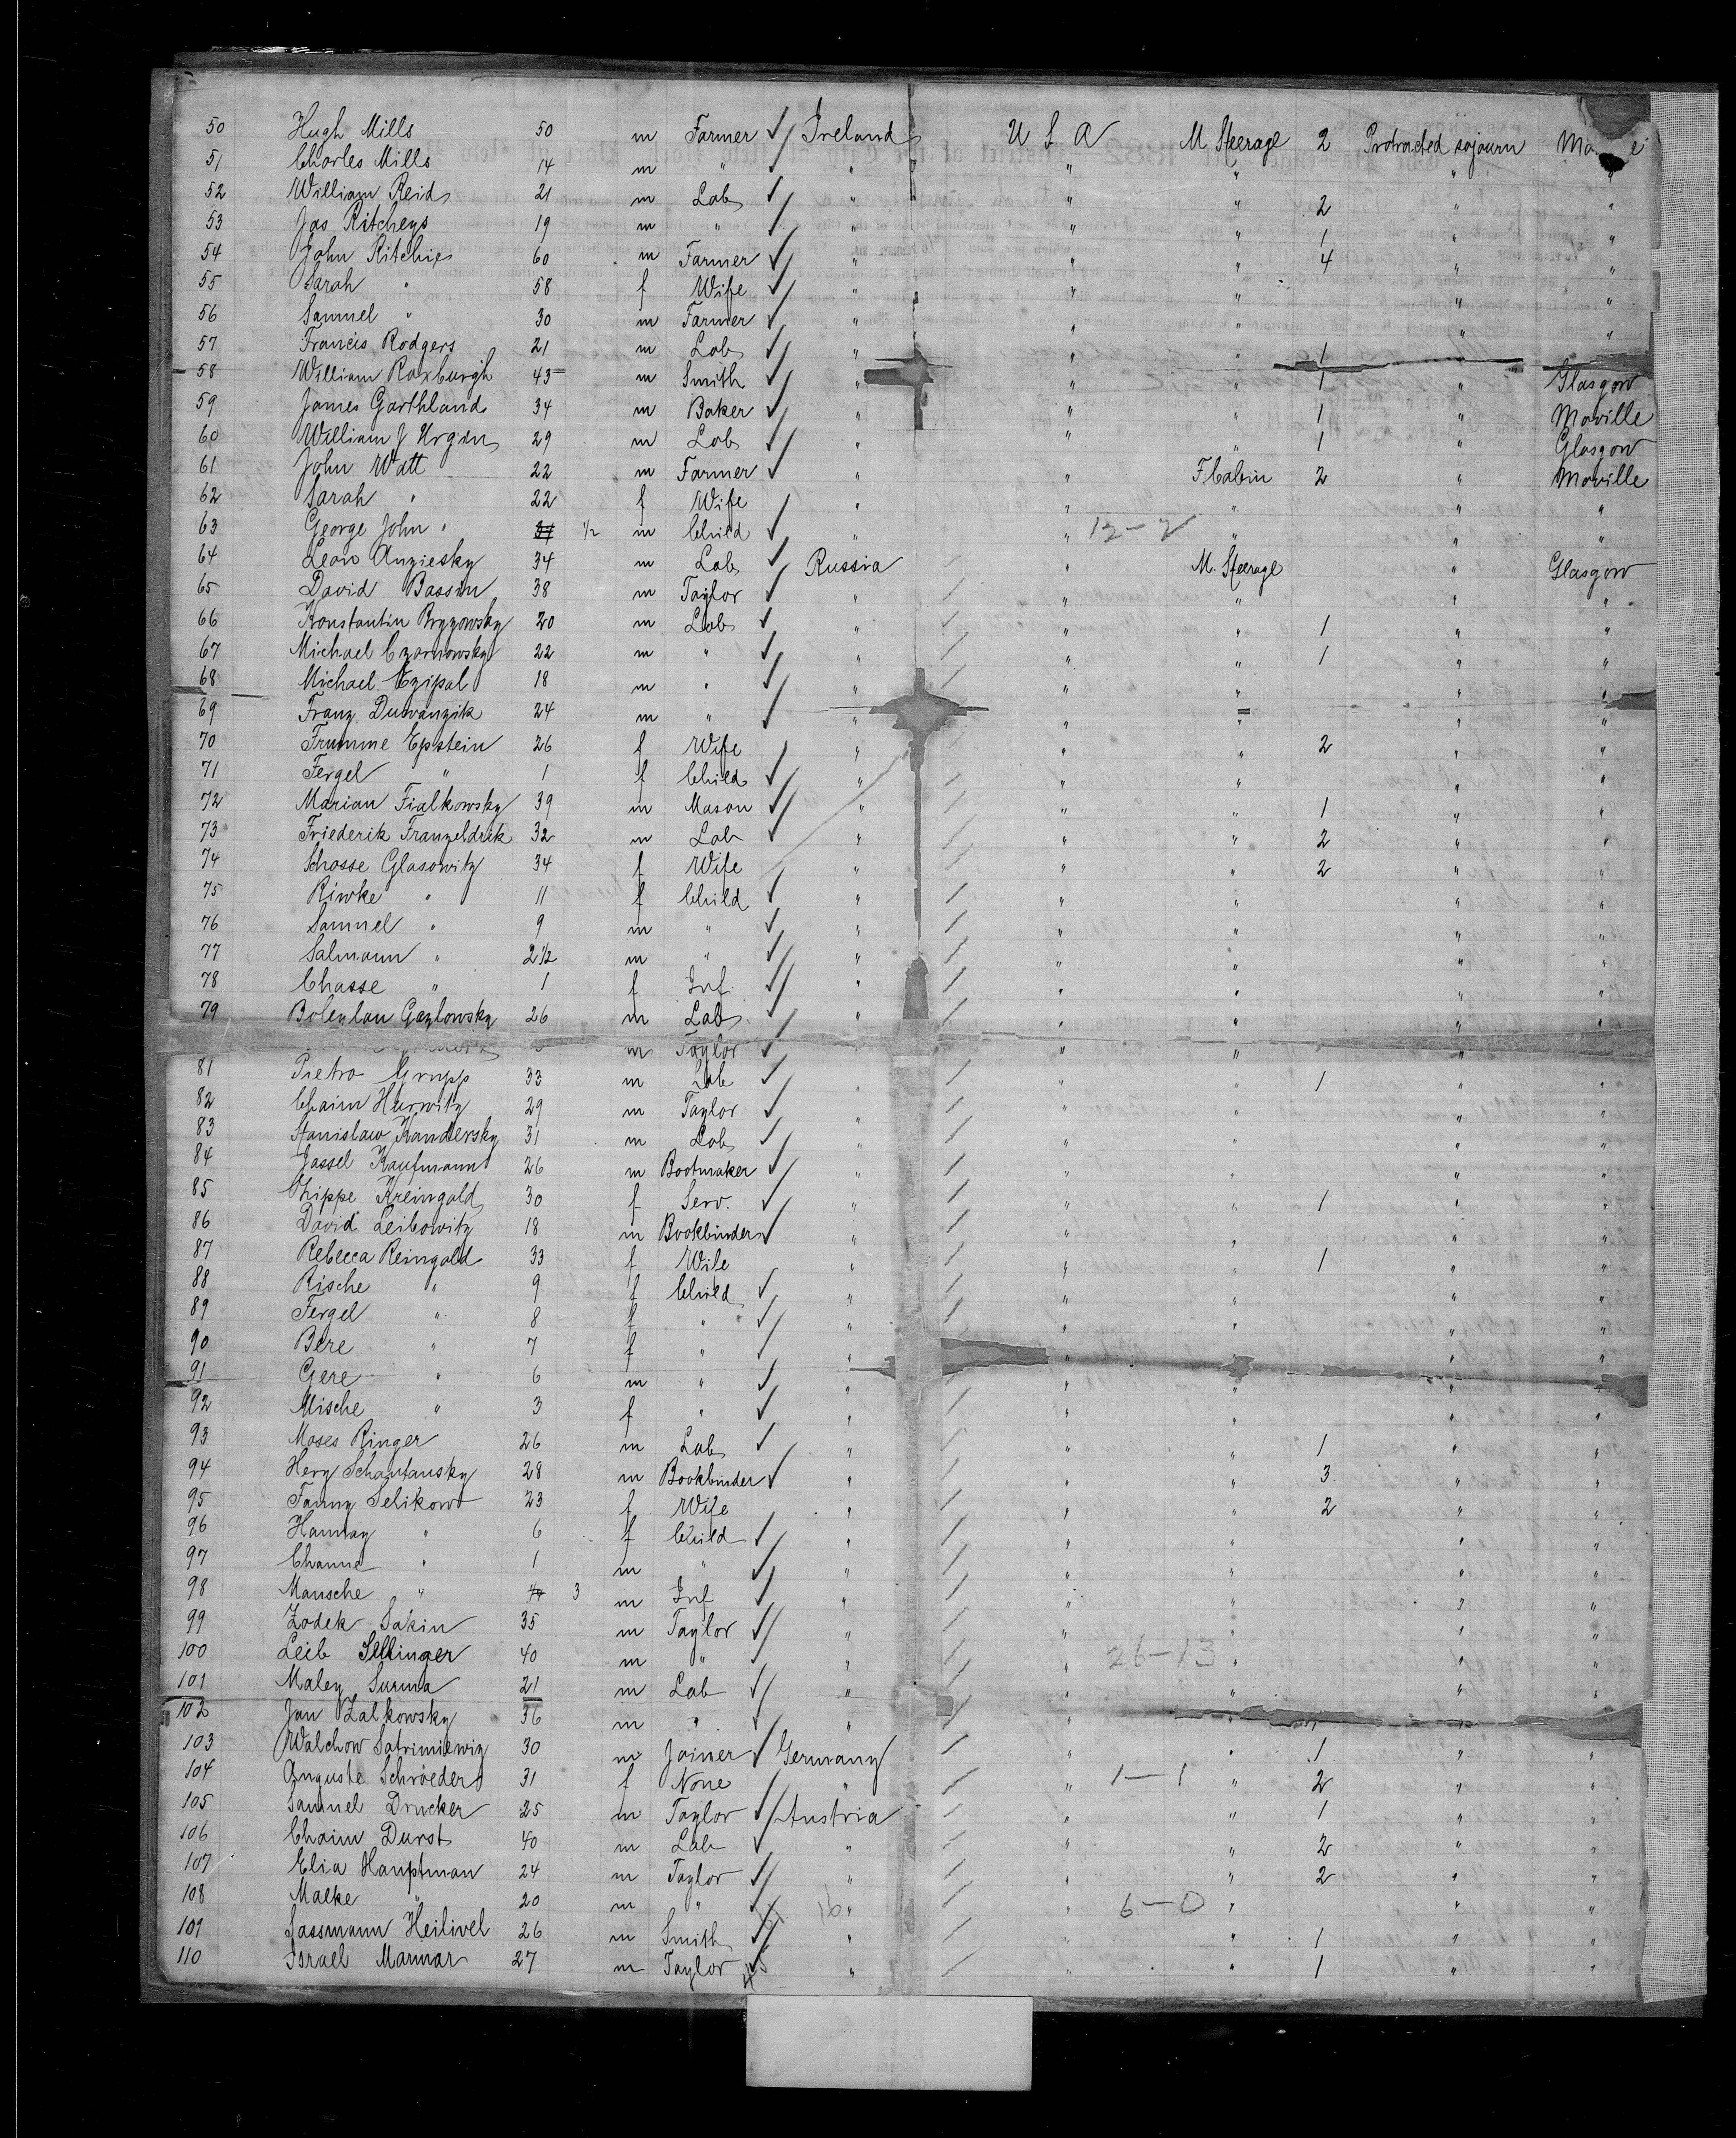 50 Hugh Mills 50 m Farmer Ireland U S A M Steerage 2 Protracted sojourn
51 Charles Mills 14 m " " " " " "
52 William Reid 21 m Lab " " " 2 " "
53 Jas Ritcheys 19 m " " " " 1 " "
54 John Ritchie 60 m Farmer " " " 4 " "
55 Sarah " 58 f Wife " " " " "
56 Samuel " 30 m Farmer " " " " "
57 Francis Rodgers 21 m Lab " " " 1 " "
58 William Roxburgh 43 m Smith " " " 1 " Glasgow
59 James Garthland 34 m Baker " " " 1 " Moville
60 William J 29 m Lab " " " 1 " Glasgow
61 John Watt 22 m Farmer " " F Cabin 2 " Moville
62 Sarah " 22 f Wife " " " " "
63 George John " 1/2 m Child " " 12-2 " " "
64 Leon Anziesky 34 m Lab Russia " M. Steerage " Glasgow
65 David Bassin 38 m Taylor " " " " "
66 Konstantin Bryzowsky 20 m Lab " " " 1 " "
67 Michael Czarnowsky 22 m " " " " 1 " "
68 Michael Czipal 18 m " " " " " "
69 Franz Duwanzik 24 m " " " " " "
70 Frumme Epstein 26 f Wife " " " 2 " "
71 Fergel " 1 f Child " " " " "
72 Marian Fialkowsky 39 m Mason " " " 1 " "
73 Friederik Franzeldrik 32 m Lab " " " 2 " "
74 Schosse Glasowitz 34 f Wife " " " 2 " "
75 Riwke " 11 f Child " " " " "
76 Samuel " 9 m " " " " " "
77 Salmann " 2 1/2 m " " " " " "
78 Chasse " 1 f Inf " " " " "
79 Boleylau Gazlowsky 26 m Lab " " " " "
m Taylor " " " "
81 Pietro Grupp 33 m Lab " " " 1 " "
82 Chaim Hurwitz 29 m Taylor " " " " "
83 Stanislaw Kandersky 31 m Lab " " " " "
84 Jassel Kaufmann 26 m Bootmaker " " " " "
85 Kreingold 30 f Serv. " " " 1 " "
86 David Leibowitz 18 m Bookbinder " " " " "
87 Rebecca Reingold 33 f Wife " " " 1 " "
88 Rische " 9 f Child " " " " "
89 Fergel " 8 f " " " " " "
90 Bere " 7 f " " " " " "
91 Gere " 6 m " " " " " "
92 Mische " 3 f " " " " " "
93 Moses Ringer 26 m Lab " " " 1 " "
94 Herz Schantansky 28 m Bookbinder " " " 3 " "
95 Fanny Selikow 23 f Wife " " " 2 " "
96 Hannay " 6 f Child " " " " "
97 Channe " 1 m " " " " " "
98 Mansche " 3 m Inf " " " " "
99 Zodek Sakin 35 m Taylor " " " " "
100 Leib Sellinger 40 m " " " 26-13 " " "
101 Maley Surma 21 m Lab " " " " "
102 Jan Zalkowsky 36 m " " " " "
103 Walchow Satrimiewiz 30 m Joiner Germany " " 1 " "
104 Auguste Schröeder 31 f None " " 1-1 " 2 " "
105 Samuel Drucker 25 m Taylor Austria " " 1 " "
106 Chaim Durst 40 m Lab " " " 2 " "
107 Elia Hauptman 24 m Taylor " " " 2 " "
108 Malke " 20 m " 16 " " 6-0 " " "
109 Sassmann Heilivel 26 m Smith " " " 1 " "
110 Israel Marmar 27 m Taylor " " " 1 " "